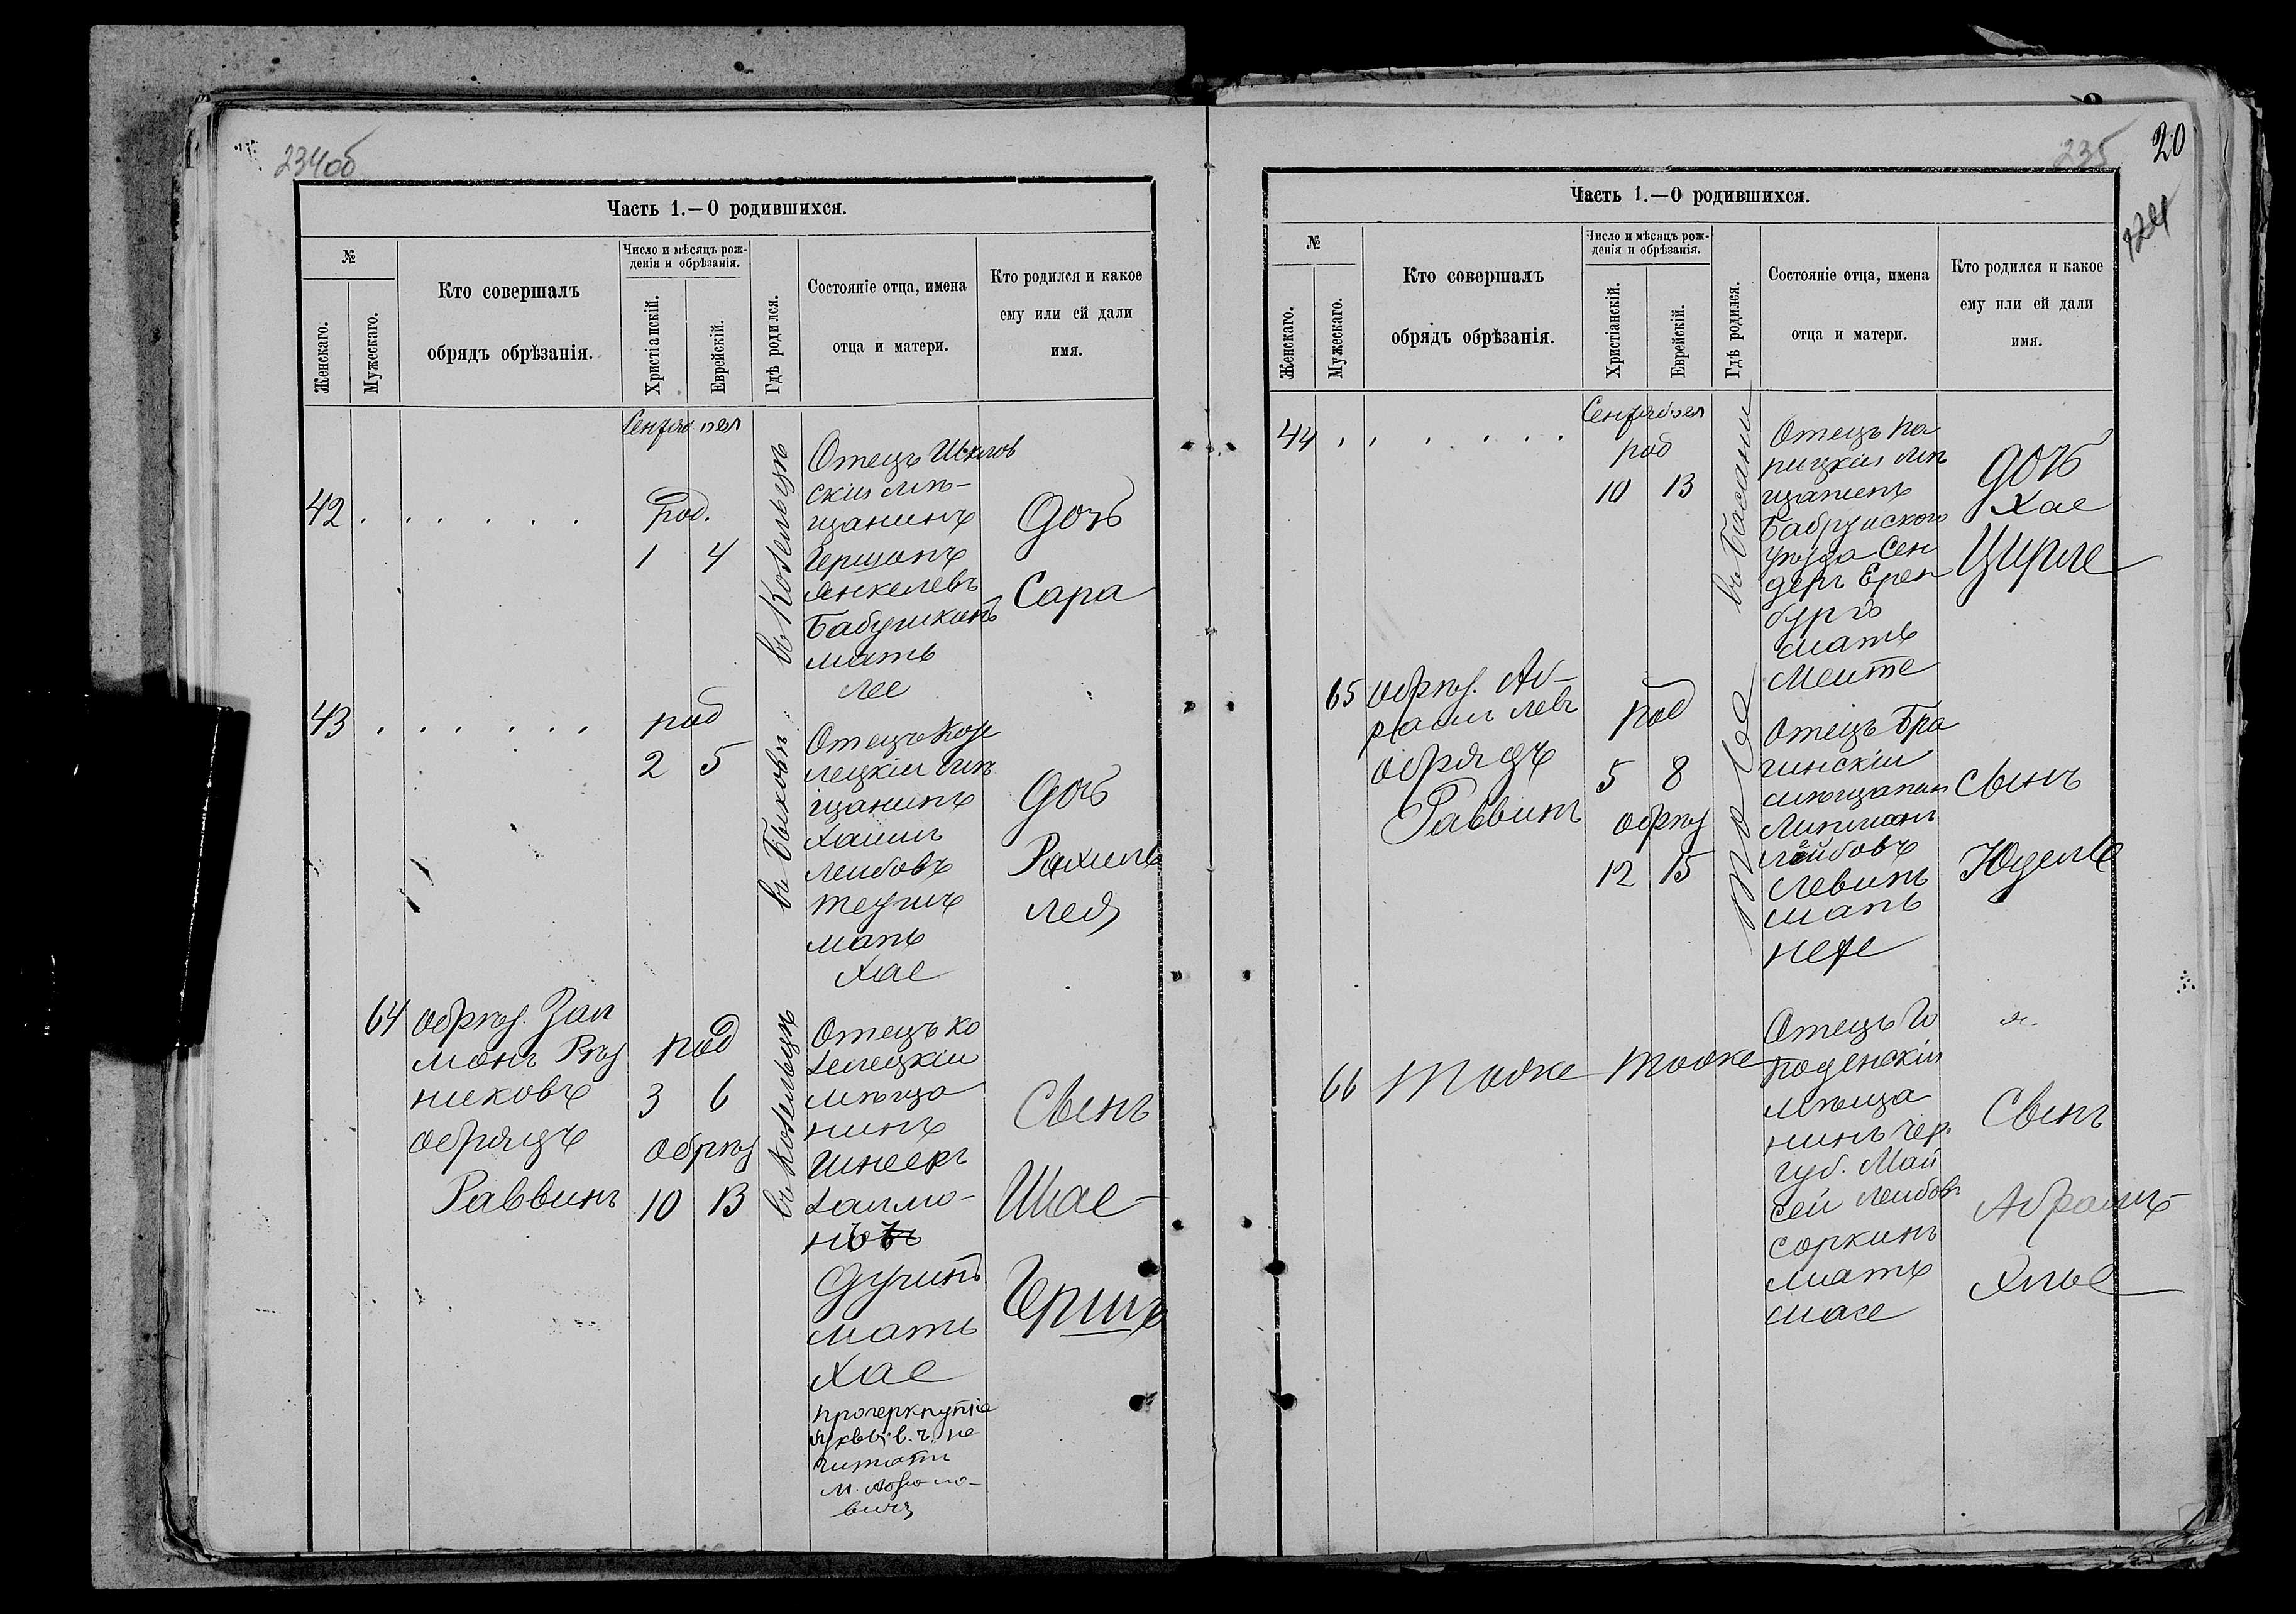 234об
Часть 1.—О родившихся.
№
Женскаго.
Мужескаго.
Кто совершалъ
обрядъ обрѣзанія.
Число и мѣсяцъ рож-
денія и обрѣзанія.
Христіанскій.
Еврейскій.
Гдѣ родился.
Состояніе отца, имена
отца и матери.
Кто родился и какое
ему или ей дали
имя.
Сентября
42 . . . . . .
род.
1 4
въ Козельцѣ
Отецъ Шклов
скій мѣ-
щанинъ
Гершонъ
Янкелевъ
Бабушкинъ
мать
Лее
Дочь
Сара
43 . . . . . .
род
2 5
въ Быковѣ
Отецъ Козе
лецкій мѣ
щанинъ
Хаимъ
Лейбовъ
мать
Хае
Дочь
Рахиль
Лея
64
обрѣз. Зал
монъ Рѣз
никовъ
обрядъ
Раввинъ
род
3 6
обрѣз
10 13
въ Козельцѣ
Отецъ Ко
зелецкій
мѣща
нинъ
Шнееръ
Залмо-
новъ
Дучинъ
мать
Хае
прочеркнутіе
буквы в. ъ. не
читать
М. Абрамо-
вичъ
Сынъ
Шае-
Гершъ
235
20
Часть 1.—О родившихся.
№
Женскаго.
Мужескаго.
Кто совершалъ
обрядъ обрѣзанія.
Число и мѣсяцъ рож-
денія и обрѣзанія.
Христіанскій.
Еврейскій.
Гдѣ родился.
Состояніе отца, имена
отца и матери.
Кто родился и какое
ему или ей дали
имя.
44 . . . . . .
Сентября
род
10 13
въ Басани
Отецъ Па
рицкій мѣ
щанинъ
Бабруйскаго
уѣзда Сен
деръ Ерен
бургъ
мать
Меите
дочь
Хае
Цирле
65
обрѣз. Аб-
рамъ Левъ
обрядъ
Раввинъ
род
5 8
обрѣз
12 15
тоже
Отецъ Бра
гинскій
мѣщанинъ
Липманъ
Лейбовъ
Левинъ
мать
Нехе
сынъ
Юдель
66
Тоже
тоже
Отецъ Го
роденскій
мѣща
нинъ Чер.
губ. Мой
сей Лейбовъ
Соркинъ
мать
Маке
Сынъ
Абрамъ-